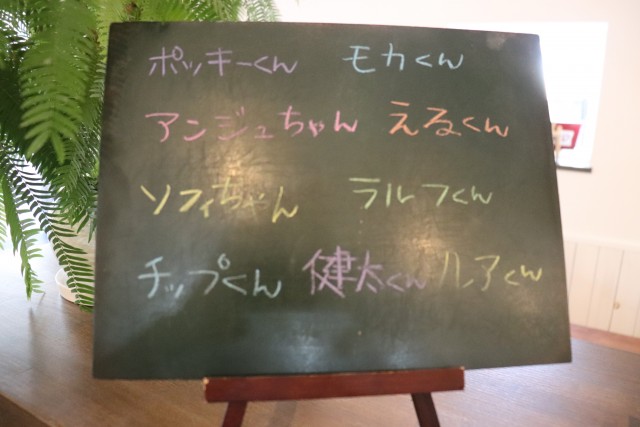 ポッキーくん モカくん
アンジュちゃん えるくん
ソフィちゃん ラルフくん
チップくん 健太くん ルアくん